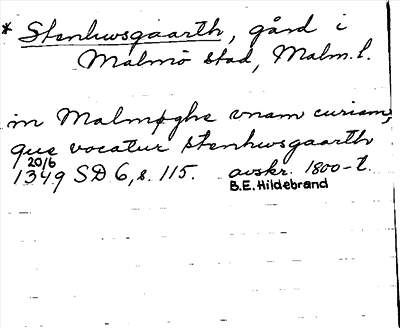 * Stenhwsgaarth, gård i
Malmö stad, Malm. l.
in Malmøghe vnam curiam,
que vocatur stenhwsgaarth
20/6
1349 SD 6, s. 115. avskr. 1800-t.
B.E. Hildebrand